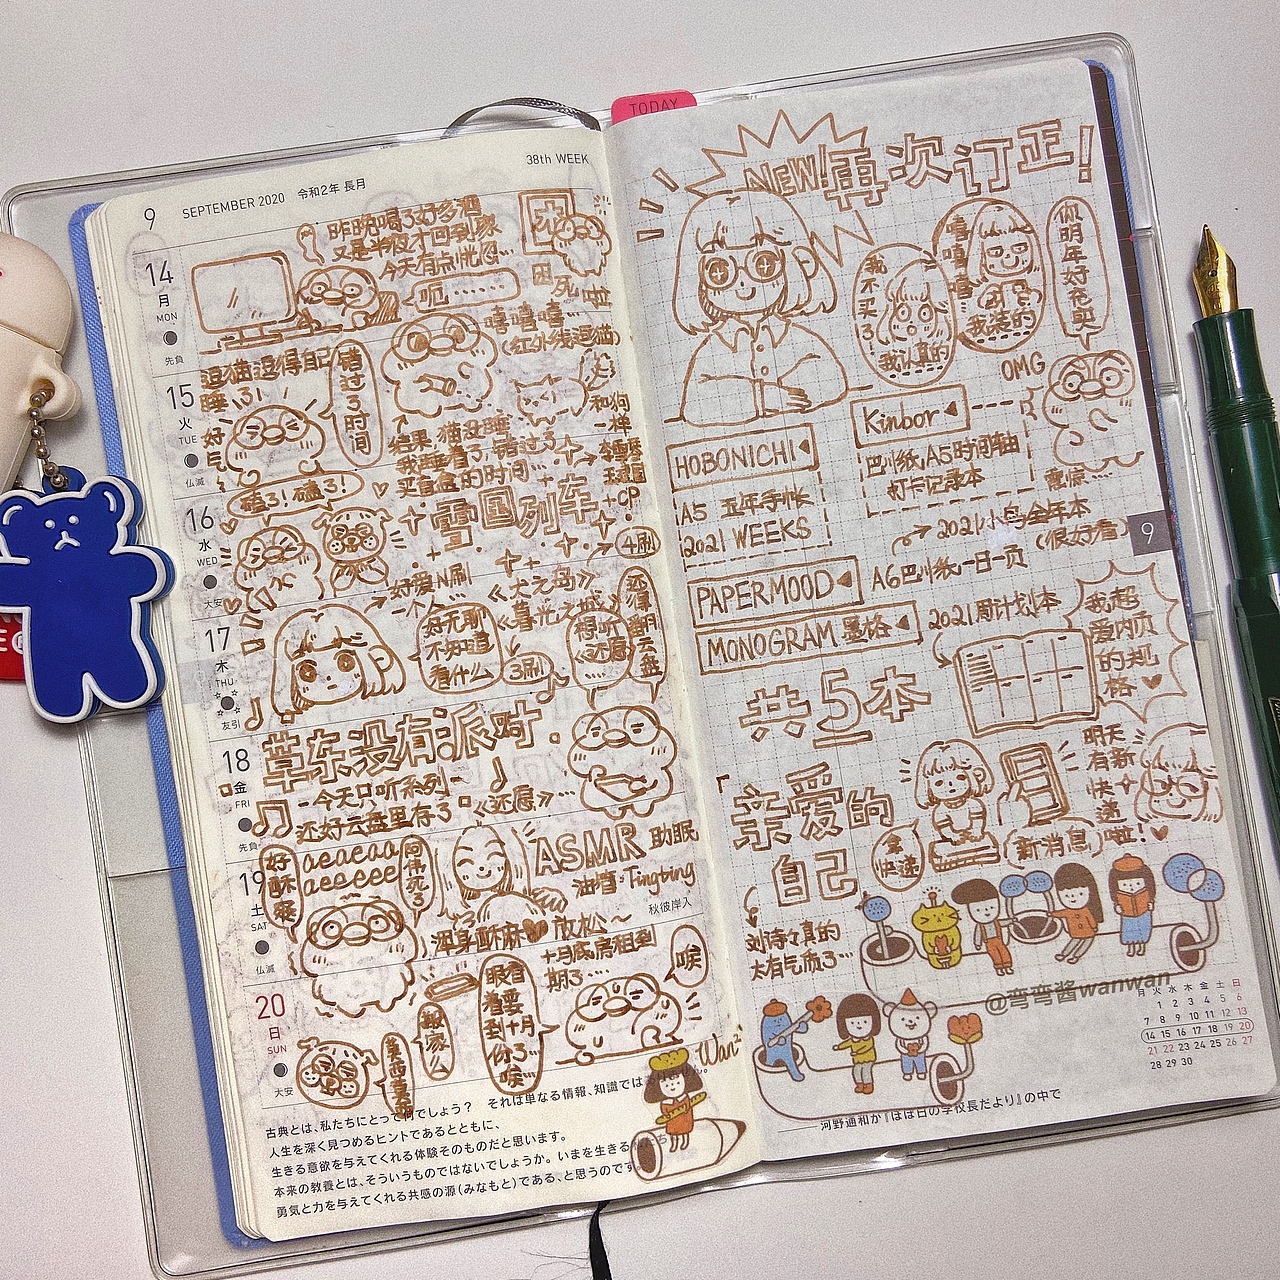 TODAY
38th WEEK
9 SEPTEMBER 2020 令和2年 長月
14
月
MON
先負
昨晚喝了好多酒
又是半夜才回到家
今天有点恍惚…
呃……
困死啦
15
火
TUE
仏滅
逗猫逗得自己
睡了!
好气
错过了时间
嘻嘻嘻…
(红外线逗猫)
结果,猫没睡
我睡着了…错过了
买盲盒的时间…
和狗
一样
16
水
WED
大安
磕了!磕了!
雪国列车
+CP
4刷
好爱N刷
一个人…
《犬之岛》
《暮光之城》
3刷
17
木
THU
友引
好无聊
不知道
看什么
想听
《还愿》
还得翻云盘
18
金
FRI
先負
草东没有派对
-今天只听系列-
还好云盘里存了
《还愿》…
19
土
SAT
仏滅
秋彼岸入
好酥爽
aeaeaa
aeeeee
阿伟死了
ASMR 助眠
油管·Tingting
浑身酥麻 放松~
20
日
SUN
大安
搬家么
眼看着要到十月份了…唉…
十月底房租到
期了…
唉
Wan²
古典とは、私たちにとって何でしょう? それは単なる情報、知識ではありません。
人生を深く見つめるヒントであるとともに、
生きる意欲を与えてくれる体験そのものだと思います。
本来の教養とは、そういうものではないでしょうか。いまを生きる私たち
勇気と力を与えてくれる共感の源(みなもと)である、と思うのです。
NEW!再次订正!
我不买了
我认真的
嘻嘻嘻
我装的
你明年好充实
OMG
震惊…
HOBONICHI
A5 五年手帐
2021 WEEKS
Kinbor
巴川纸,A5时间轴
打卡记录本
2021小鸟全年本
(很好看)
PAPERMOOD
A6巴川纸一日一页
MONOGRAM 墨格
2021周计划本
我超
爱内页
的规
格
共5本
亲爱的
自己
拿快递
新消息
明天
有新
快递
啦!
刘诗诗真的
太有气质了…
9
@弯弯酱wanwan
月 火 水 木 金 土 日
1 2 3 4 5 6
7 8 9 10 11 12 13
14 15 16 17 18 19 20
21 22 23 24 25 26 27
28 29 30
河野通和か『ほぼ日の学校長だより』の中で